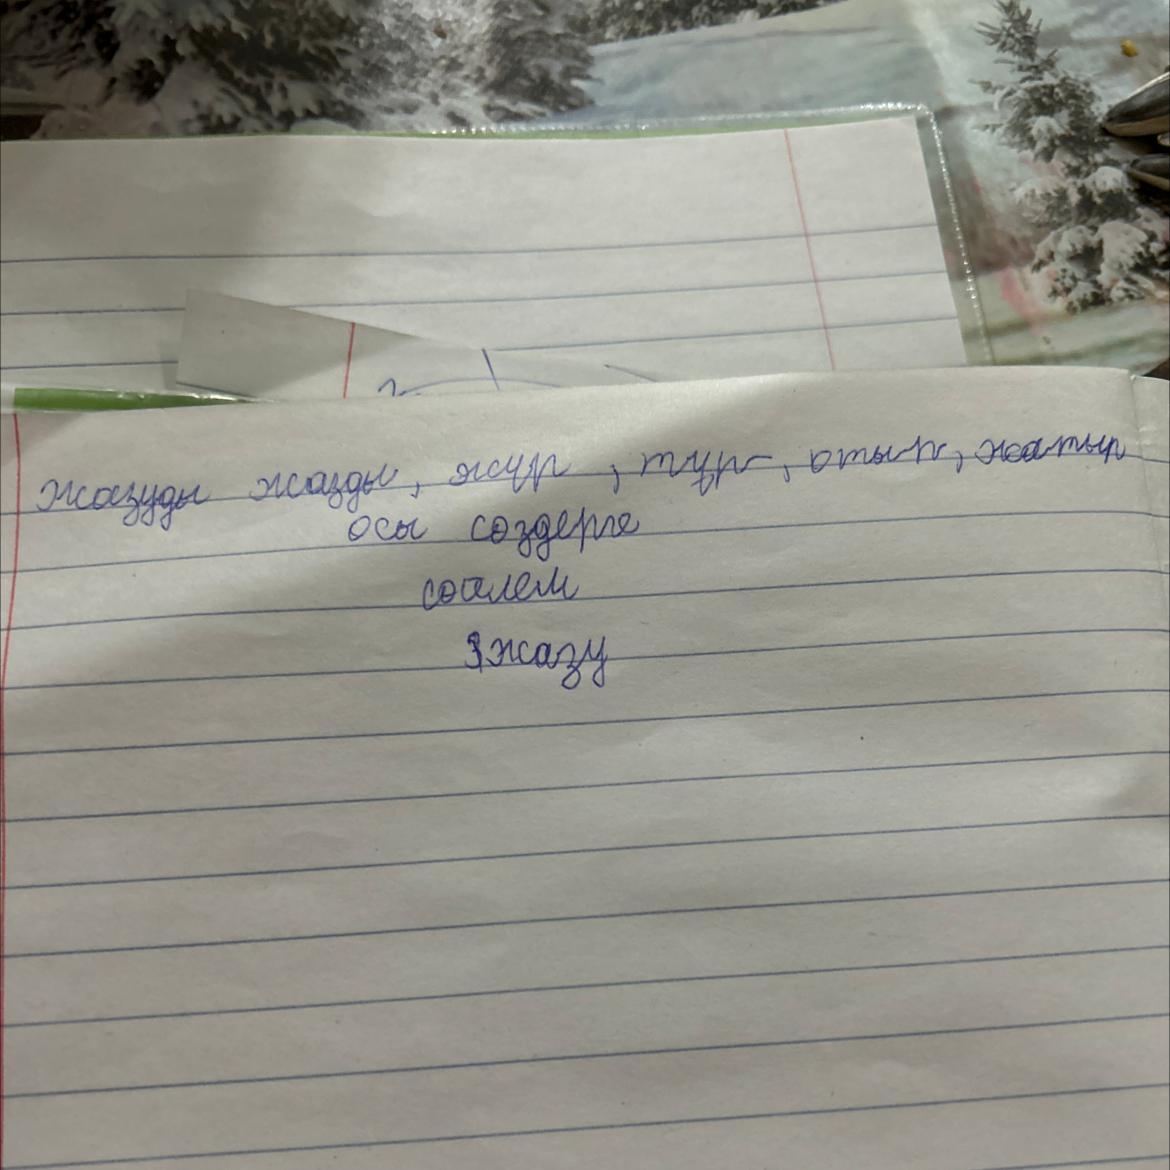 жазуды жазды, жүр, тұр, отыр, жатыр
осы сөздерге
сөйлем
жазу